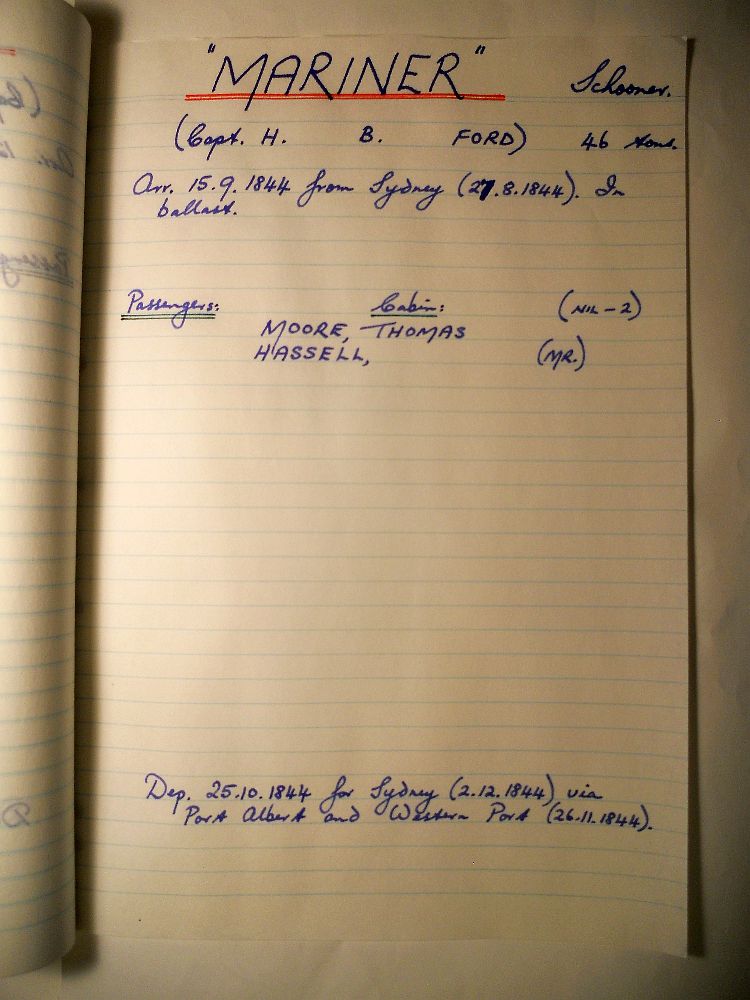 "MARINER" Schooner.
(Capt. H. B. FORD) 46 tons.
Arr. 15.9.1844 from Sydney (27.8.1844). In
ballast.
Passengers: Cabin: (NIL-2)
MOORE, THOMAS
HASSELL, (MR.)
Dep. 25.10.1844 for Sydney (2.12.1844) via
Port Albert and Western Port (26.11.1844).